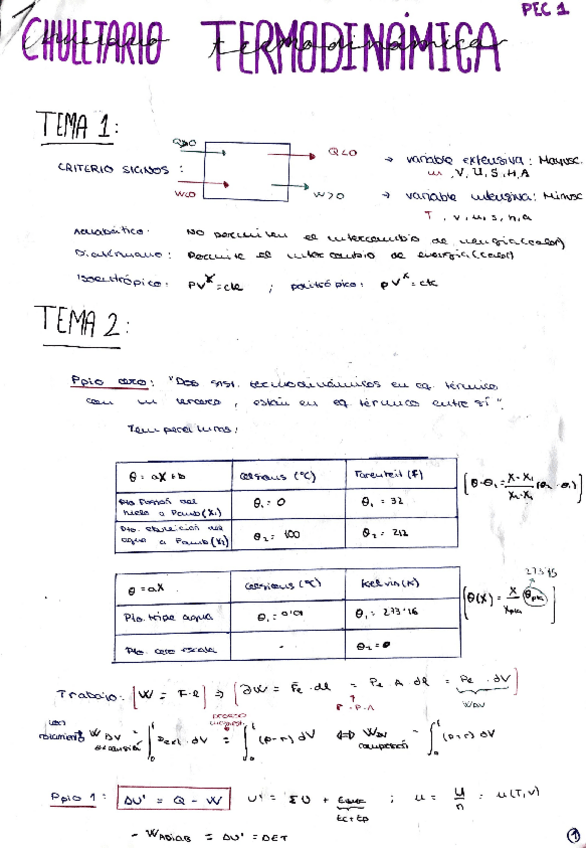 PEC 1
CHULETARIO TERMODINÁMICA
TEMA 1:
Q>0
Q<0
→ variable extensiva: Mayusc.
m, V, U, S, H, A
CRITERIO SIGNOS:
W<0
W>0
→ variable intensiva: Minusc
T, v, u, s, h, a
Adiabático: No permiten el intercambio de energía (calor)
Diatérmano: Permite el intercambio de energía (calor)
Isoentrópico: PV^γ = cte ; politrópico: PV^k = cte
TEMA 2:
Ppio cero: "Dos sist. termodinámicos en eq. térmico
con un tercero, están en eq térmico entre sí".
Temperaturas:
θ = aX + b
Celsius (°C)
Farenheit (F)
hielo a Pamb (X₁)
θ₁ = 0
θ₁ = 32
Pto. ebullición del
agua a Pamb (X₂)
θ₂ = 100
θ₂ = 212
[θ - θ₁ = X - X₁ / X₂ - X₁ (θ₂ - θ₁)]
θ = aX
Celsius (°C)
Kelvin (K)
Pto. triple agua
θ₁ = 0'01
θ₁ = 273'16
Pto. cero escala
-
θ₂ = 0
273'16
[θ(X) = X / Xpta θpta]
Trabajo: [W = F·l] ⇒ [∂W = Fe · dl = Pe A dl = Pe · dV]
W_DV
con
rozamiento
expansión
Pext · dV = ∫ (p-r) dV ⇔ W_DV = ∫ (p+r) dV
compresión
Ppio 1: ΔU' = Q - W
U' = ΣU + ; u = U/n = u(T,V)
Ec + Ep
- WADIAB = ΔU' = ΔET
1